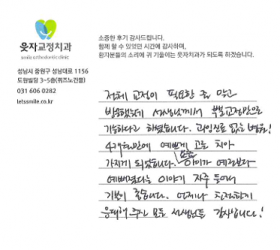 웃자교정치과
usza orthodontic clinic
성남시 중원구 성남대로 1156
도원빌딩 3-5층(위즈노건물)
031 606 0282
letssmile.co.kr
소중한 후기 감사드립니다.
함께 할 수 있었던 시간에 감사하며,
환자분들의 소리에 귀 기울이는 웃자치과가 되도록 하겠습니다.
전체 교정이 필요한 줄 알고
방문했는데 선생님께서 부분교정만으로
가능하다고 하셨습니다. 과잉진료 없는 병원!
4개월만에 예쁘게 고른 치아
가지게 되었습니다. 웃는 이미지가 예전보다
예뻐졌다는 이야기 자주 들어서
기분이 좋습니다. 언제나 친절하게
응대해 주신 모든 선생님들 감사합니다!